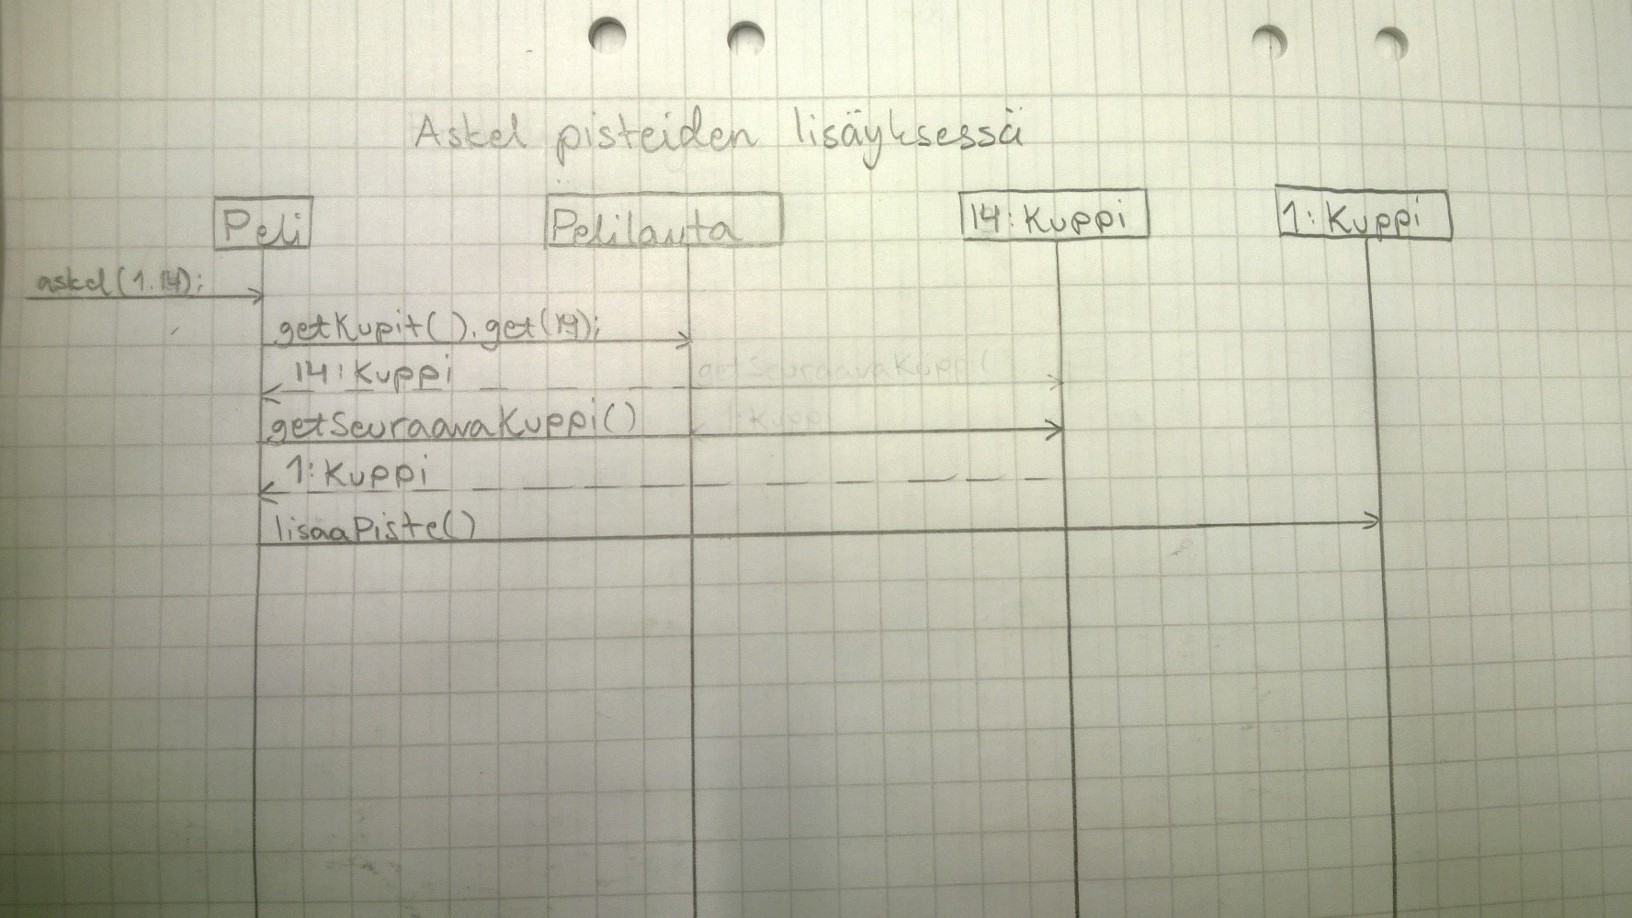 Askel pisteiden lisäyksessä
Peli
Pelilauta
14:Kuppi
1:Kuppi
askel(1.14);
getKupit().get(14);
14:Kuppi
getSeuraavaKuppi(
getSeuraavaKuppi()
1:Kuppi
1:Kuppi
lisaaPiste()